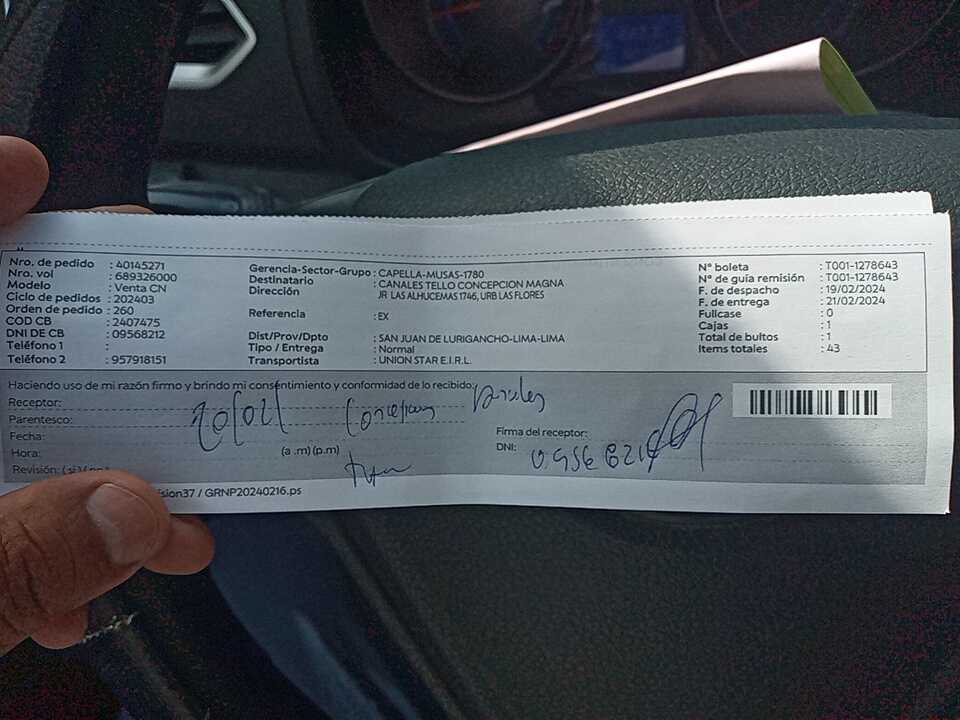 Nro. de pedido : 40145271
Nro. vol : 689326000
Modelo : Venta CN
Ciclo de pedidos : 202403
Orden de pedido : 260
COD CB : 2407475
DNI DE CB : 09568212
Teléfono 1 :
Teléfono 2 : 957918151
Gerencia-Sector-Grupo : CAPELLA-MUSAS-1780
Destinatario : CANALES TELLO CONCEPCION MAGNA
Dirección JR LAS ALHUCEMAS 1746, URB LAS FLORES
Referencia : EX
Dist/Prov/Dpto : SAN JUAN DE LURIGANCHO-LIMA-LIMA
Tipo / Entrega : Normal
Transportista : UNION STAR E.I.R.L.
N° boleta : T001-1278643
N° de guía remisión : T001-1278643
F. de despacho : 19/02/2024
F. de entrega : 21/02/2024
Fullcase : 0
Cajas : 1
Total de bultos : 1
Items totales : 43
Haciendo uso de mi razón firmo y brindo mi consentimiento y conformidad de lo recibido:
Receptor:
Parentesco:
Fecha:
Hora: (a .m) (p.m)
Revisión: ( si )
Concepcion Canales
Firma del receptor:
DNI:
ision37 / GRNP20240216.ps